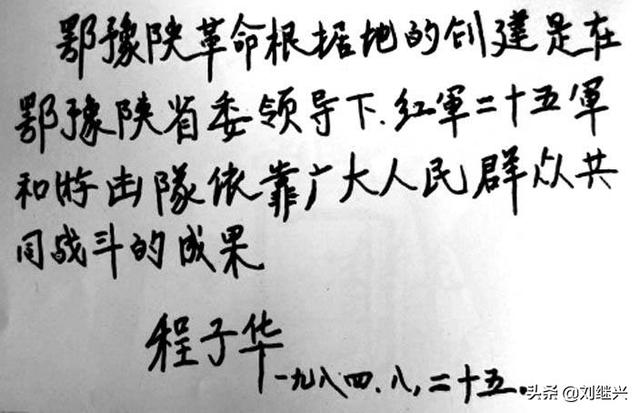 鄂豫陕革命根据地的创建是在
鄂豫陕省委领导下.红軍二十五軍
和游击隊依靠广大人民群众共
同战斗的成果
程子华
一九八四.八,二十五.
头条 @刘继兴